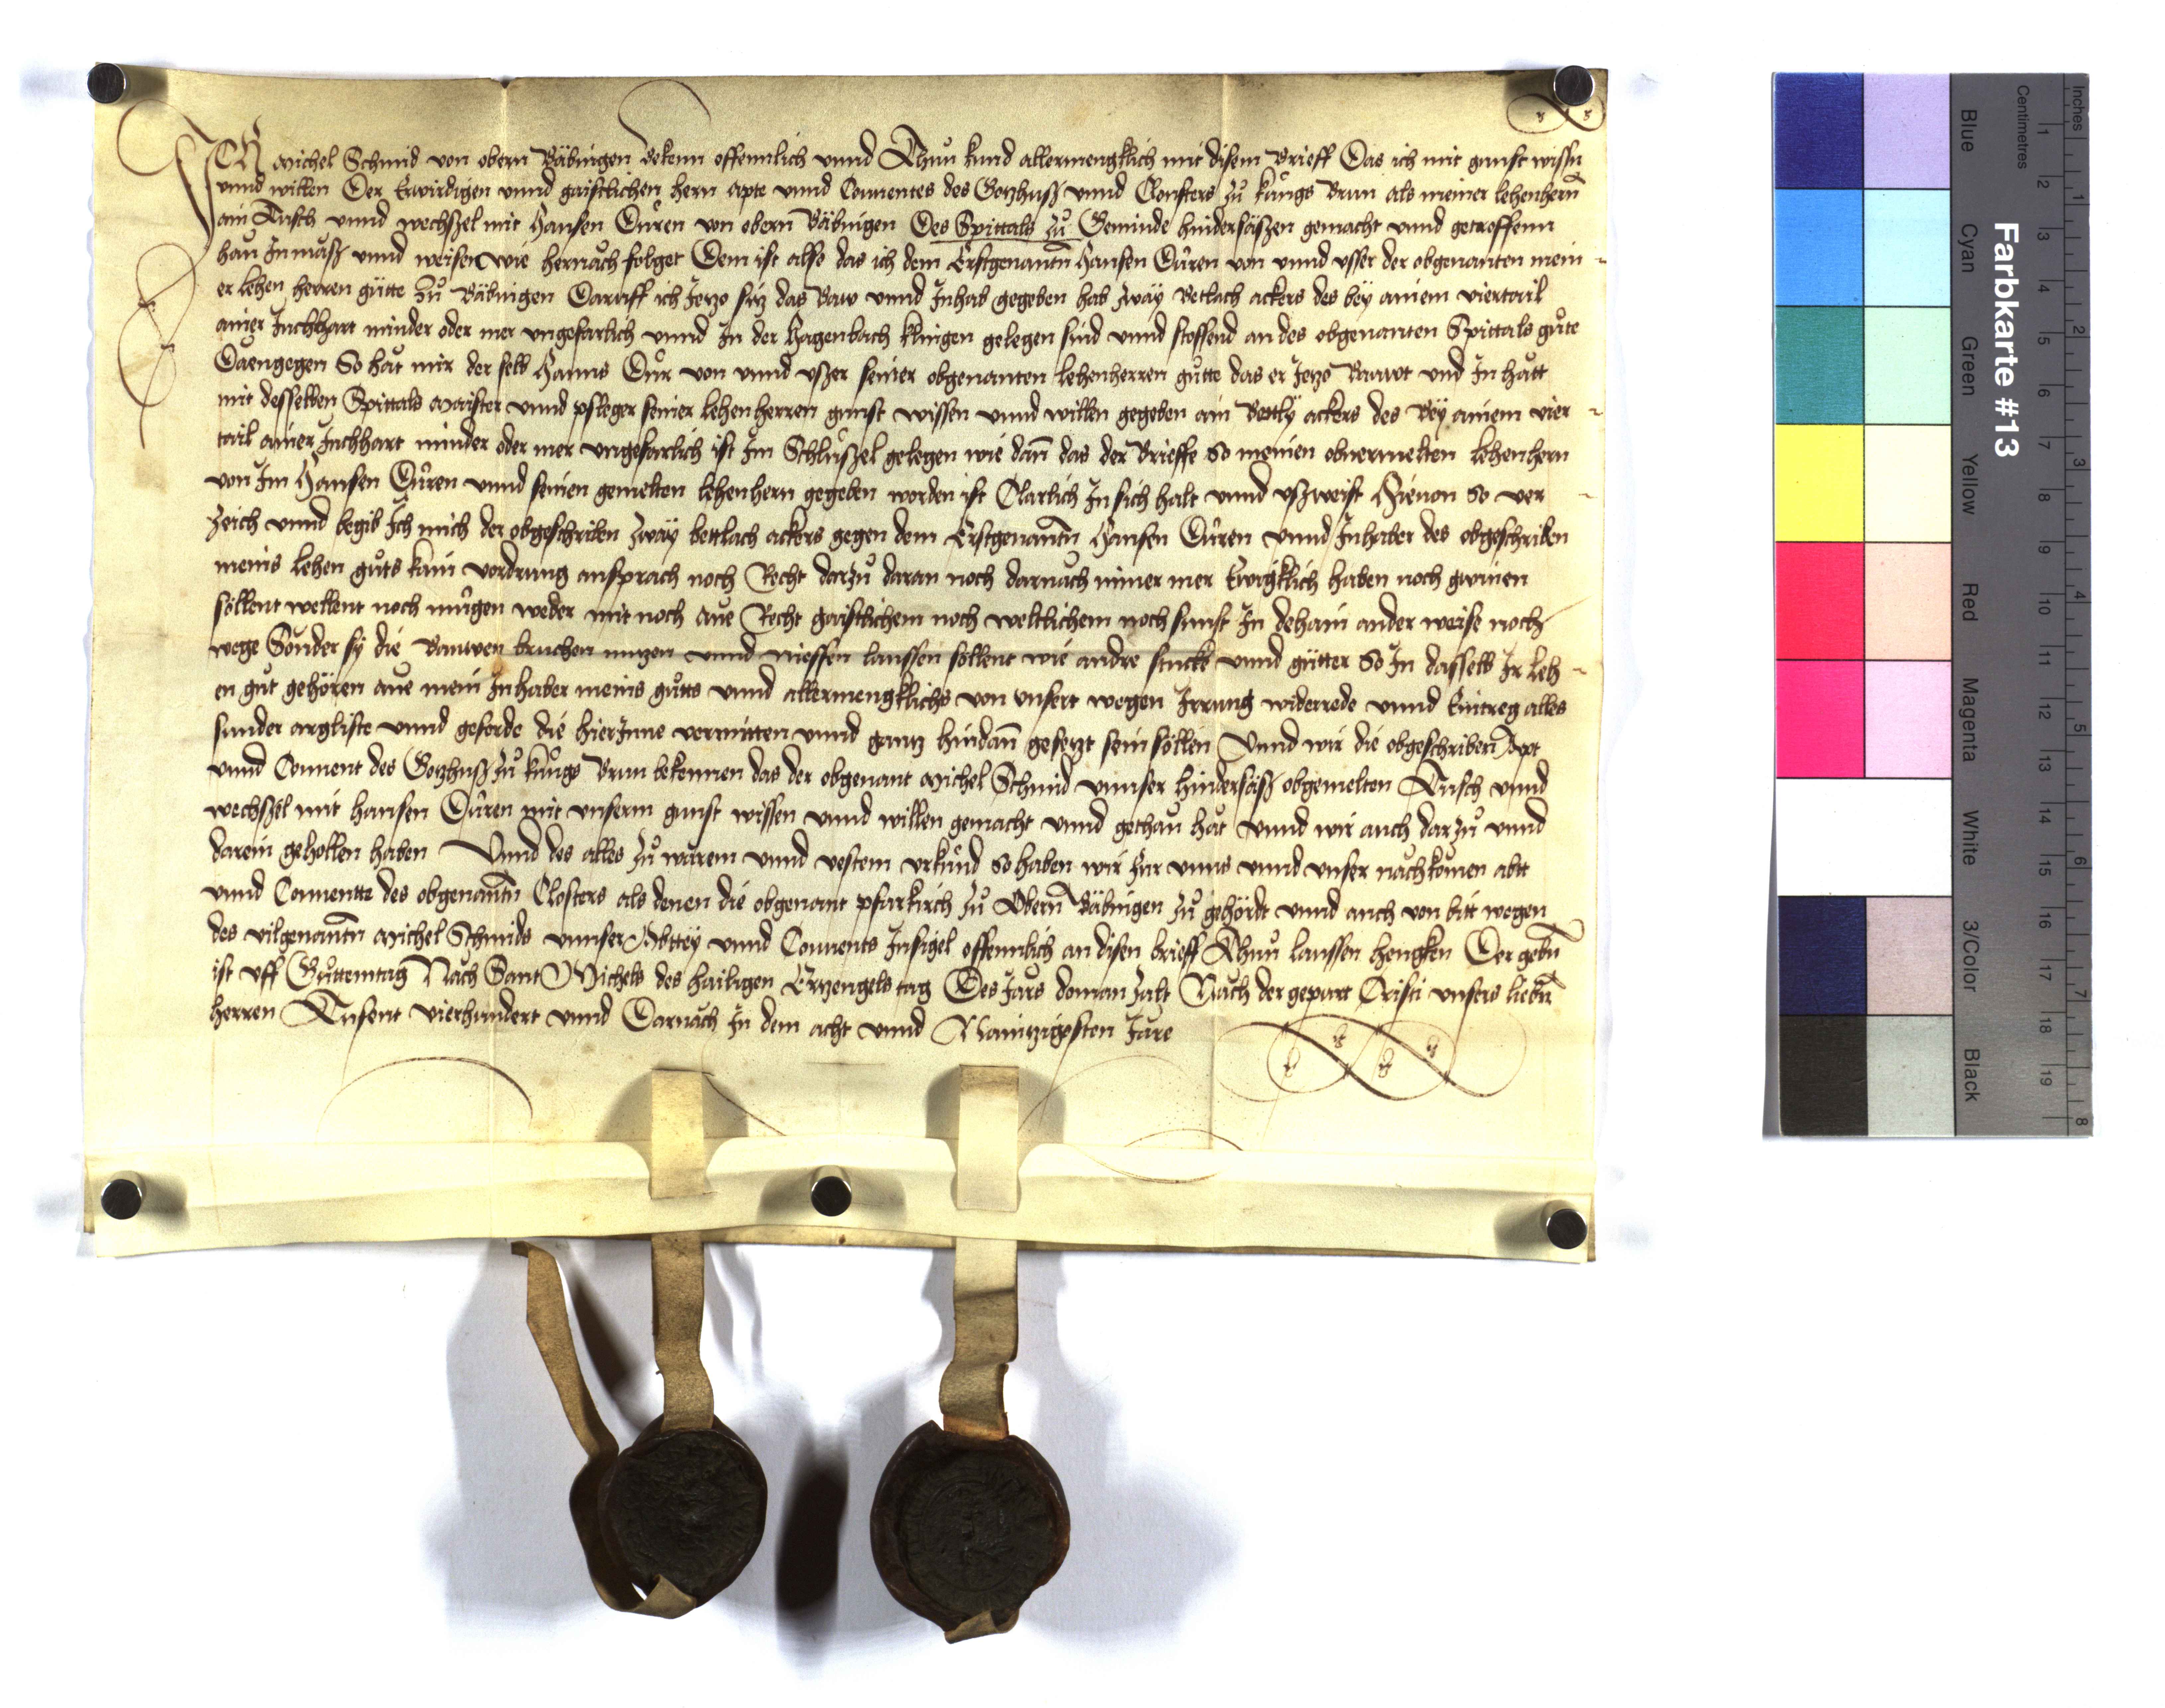 ICH Michel Schmid von obern Bäbingen Bekenn offennlich vnnd Thun kund allermengklich mit disem Brieff Das ich mit gunst wissn
vnnd willen Der Erwirdigen vnnd gaistlichen hern Apte vnnd Conuentes des Gotzhuß vnnd Closters zů kungs Brun als meiner lehenhern
ain Tusch vnnd wechßel mit Hansen Dŭren von obern Bäbingen Des Spittals zů Gemünde hindersäßen gemacht vnnd getroffenn
han Inmäß vnnd weisen wie hernäch folget Dem ist also das ich dem Erstgenantn Hansen Dŭren von vnnd vsser der obgenanten mein-
er lehen herren gůtte Zů Bäbingen Daruff ich Jetzo sitz das Baw vnnd Inhab gegeben hab zwäy Betlach ackers des bey ainem viertail
ainer Juchhart minder oder mer vngefarlich vnnd In der Hagenbach klingen gelegen sind vnnd stossend an des obgenanten Spittals gůte
Daengegen So hät mir der selb Hanns Dŭr von vnnd vßer seiner obgenanten lehenherren gůtte das er Jetzo Bauwt vnd In hätt
mit desselben Spittals Maister vnnd pfleger seiner lehenherren gunst wissen vnnd willen gegeben ain Bettly ackers des Bey ainem vier-
tail ainer Juchhart minder oder mer vngefarlich ist Im Schlŭßel gelegen wie dann das der Brieffe so meinen obuermelten lehenhern
von Im Hansen Dŭren vnnd seinen gemelten lehenhern gegeben worden ist Clarlich In sich halt vnnd vßweist Hieuon So ver-
zeich vnnd begib Ich mich der obgeschriben zwäy bettlach ackers gegen dem Erstgenantn Hansen Dŭren vnnd Inhaber des obgeschriben
meins lehen gůts kain vordrung ansprach noch Recht darzů daran noch darnäch nimer mer Ewigklich haben noch gwinen
söllent wellent noch mŭgen weder mit noch äne Recht gaistlichem noch weltlichem noch sunst In dehain ander weise noch
wege Sonder sy die Bauwen bruchen nutzen vnnd niessen laussen söllent wie andre stuckh vnnd gůtter So In dasselb Ir leh-
en gůt gehören äne mein Inhaber meins gůtts vnnd allermengklichs von vnsert wegen Irrung widerrede vnnd Eintreg alles
sunder argliste vnnd geferde die hierInne vermitten vnnd gantz hindann gesetzt sein söllen Vnnd wir die obgeschriben Apt
vnnd Conuent des Gotzhuß zů kungs Brun bekennen das der obgenant Michel Schmid vnnser hindersäß obgemelten Tusch vnnd
wechßel mit hansen Dŭren mit vnserm gunst wissen vnnd willen gemacht vnnd gethan hät Vnnd wir auch darzů vnnd
darein geholffen haben Vnnd des alles zů wärem vnnd vestem vrkund so haben wir fur vnns vnnd vnser nächkomen abtt
vnnd Conuentte des obgenantn Closters als denen die obgenant pfarkirch zů Obern Bäbingen zů gehördt vnnd auch von bitt wegen
des vilgenanntn Michel Schmids vnnser Abttey vnnd Conuents Insigel offennlich an disen brieff Thun laussen hengken Der gebn
ist vff Gŭttemtag Näch Sant Michels des hailigen Ertzengels tag Des Järs doman zalt Näch der gepurt Cristi vnsers liebn
herren Tusent vierhundert vnnd Darnäch In dem acht vnnd Naintzigesten Järe
Farbkarte #13
Blue Cyan Green Yellow Red Magenta White 3/Color Black
Centimetres 1 2 3 4 5 6 7 8 9 10 11 12 13 14 15 16 17 18 19
Inches 1 2 3 4 5 6 7 8